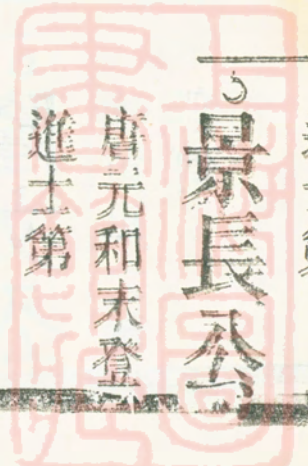 景長公
唐元和末登
進士第